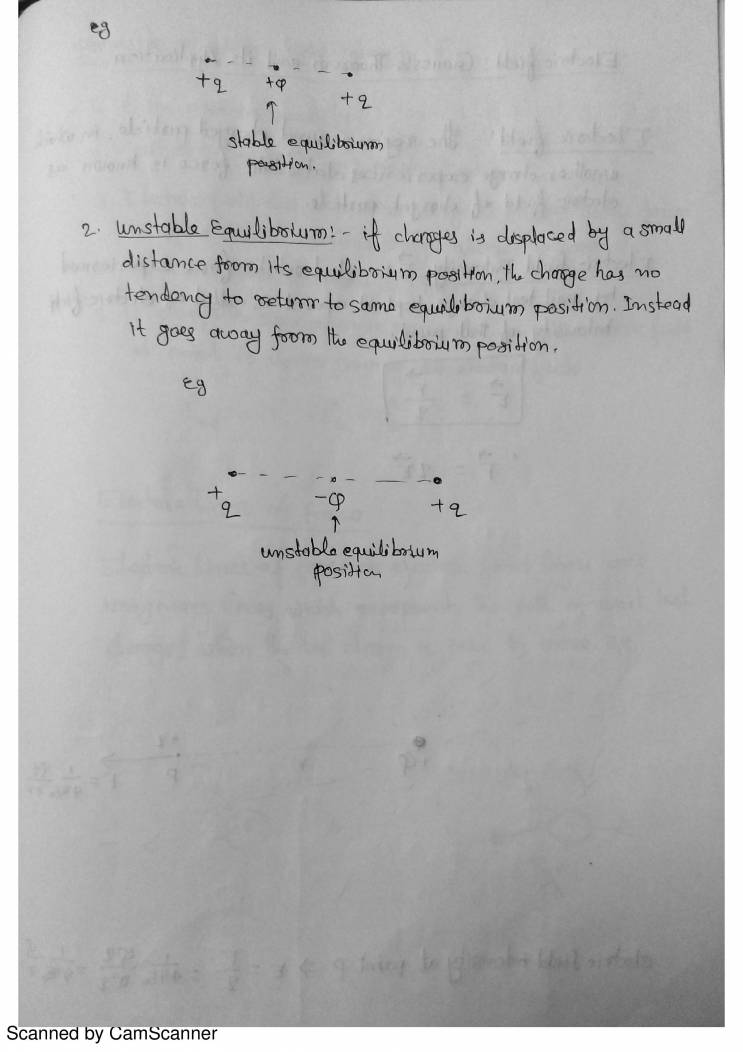 eg
+q +φ
+q
stable equilibrium
position.
2. Unstable Equilibrium:- if charges is displaced by a small
distance from its equilibrium position, the charge has no
tendency to return to same equilibrium position. Instead
it goes away from the equilibrium position.
Eg
+q -φ +q
unstable equilibrium
position
Scanned by CamScanner